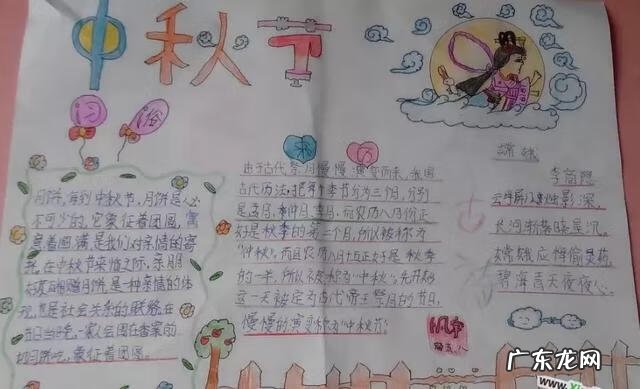 中秋节
习俗
月饼,有到中秋节,月饼是人
不可少的,它象征着团圆,寓
意着圆满是我们对亲情的寄
托,在中秋节来临之际,亲朋
月饼是一种亲情的体
现,也是社会关系的联络,在
一家人会围在香案前
切月饼吃,象征着团圆。
来历
由于古代祭月慢慢演变而来,我国
古代历法,把每个季节分为三个月,分别
是孟月,仲月,季月,而农历八月份正
好是秋季的第二个月,所以被称为
“仲秋”,而且农历八月十五正好是秋季
的一半,所以被称为“中秋”,
这一天被定为古代帝王祭月的节日,
慢慢的演变称为“中秋节”
嫦娥
李商隐
云母屏风烛影深,
长河渐落晓星沉。
嫦娥应悔偷灵药,
碧海青天夜夜心。
广东龙网